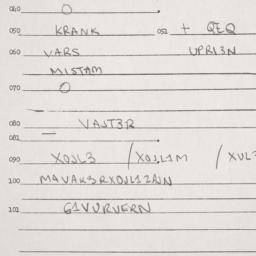 040 O
050 KRANK 052 + QEQ
060 VARS UPRI3N
MISTAM
070 O
080 VAJT3R
081
090 XOJL3 /XOJL1M /XUL3
100
101 G1VURVERN